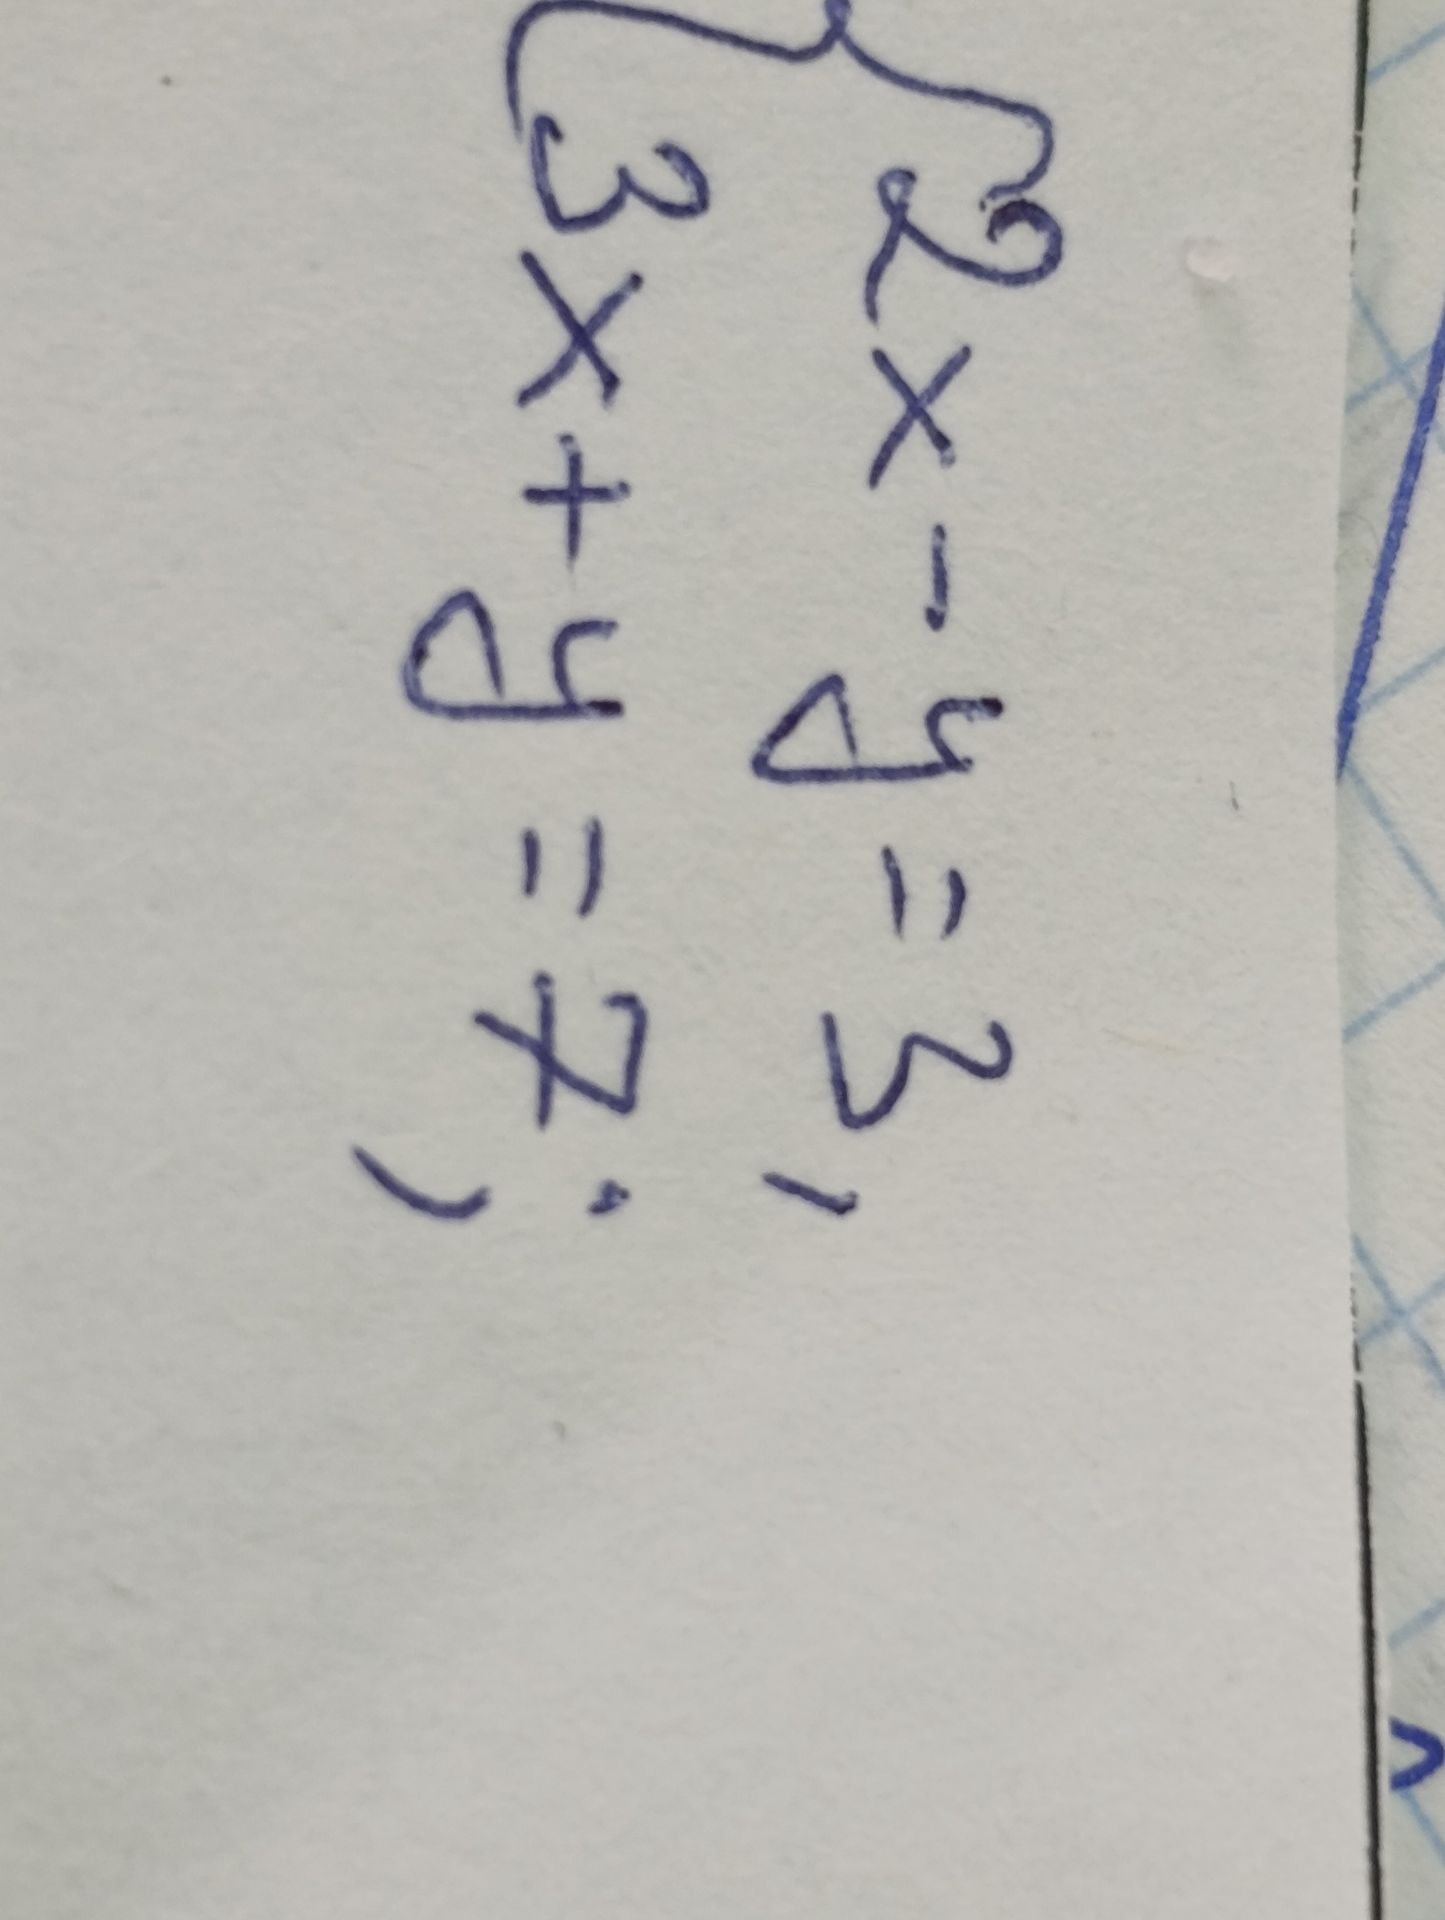 2x - y = 3,
3x + y = 7;